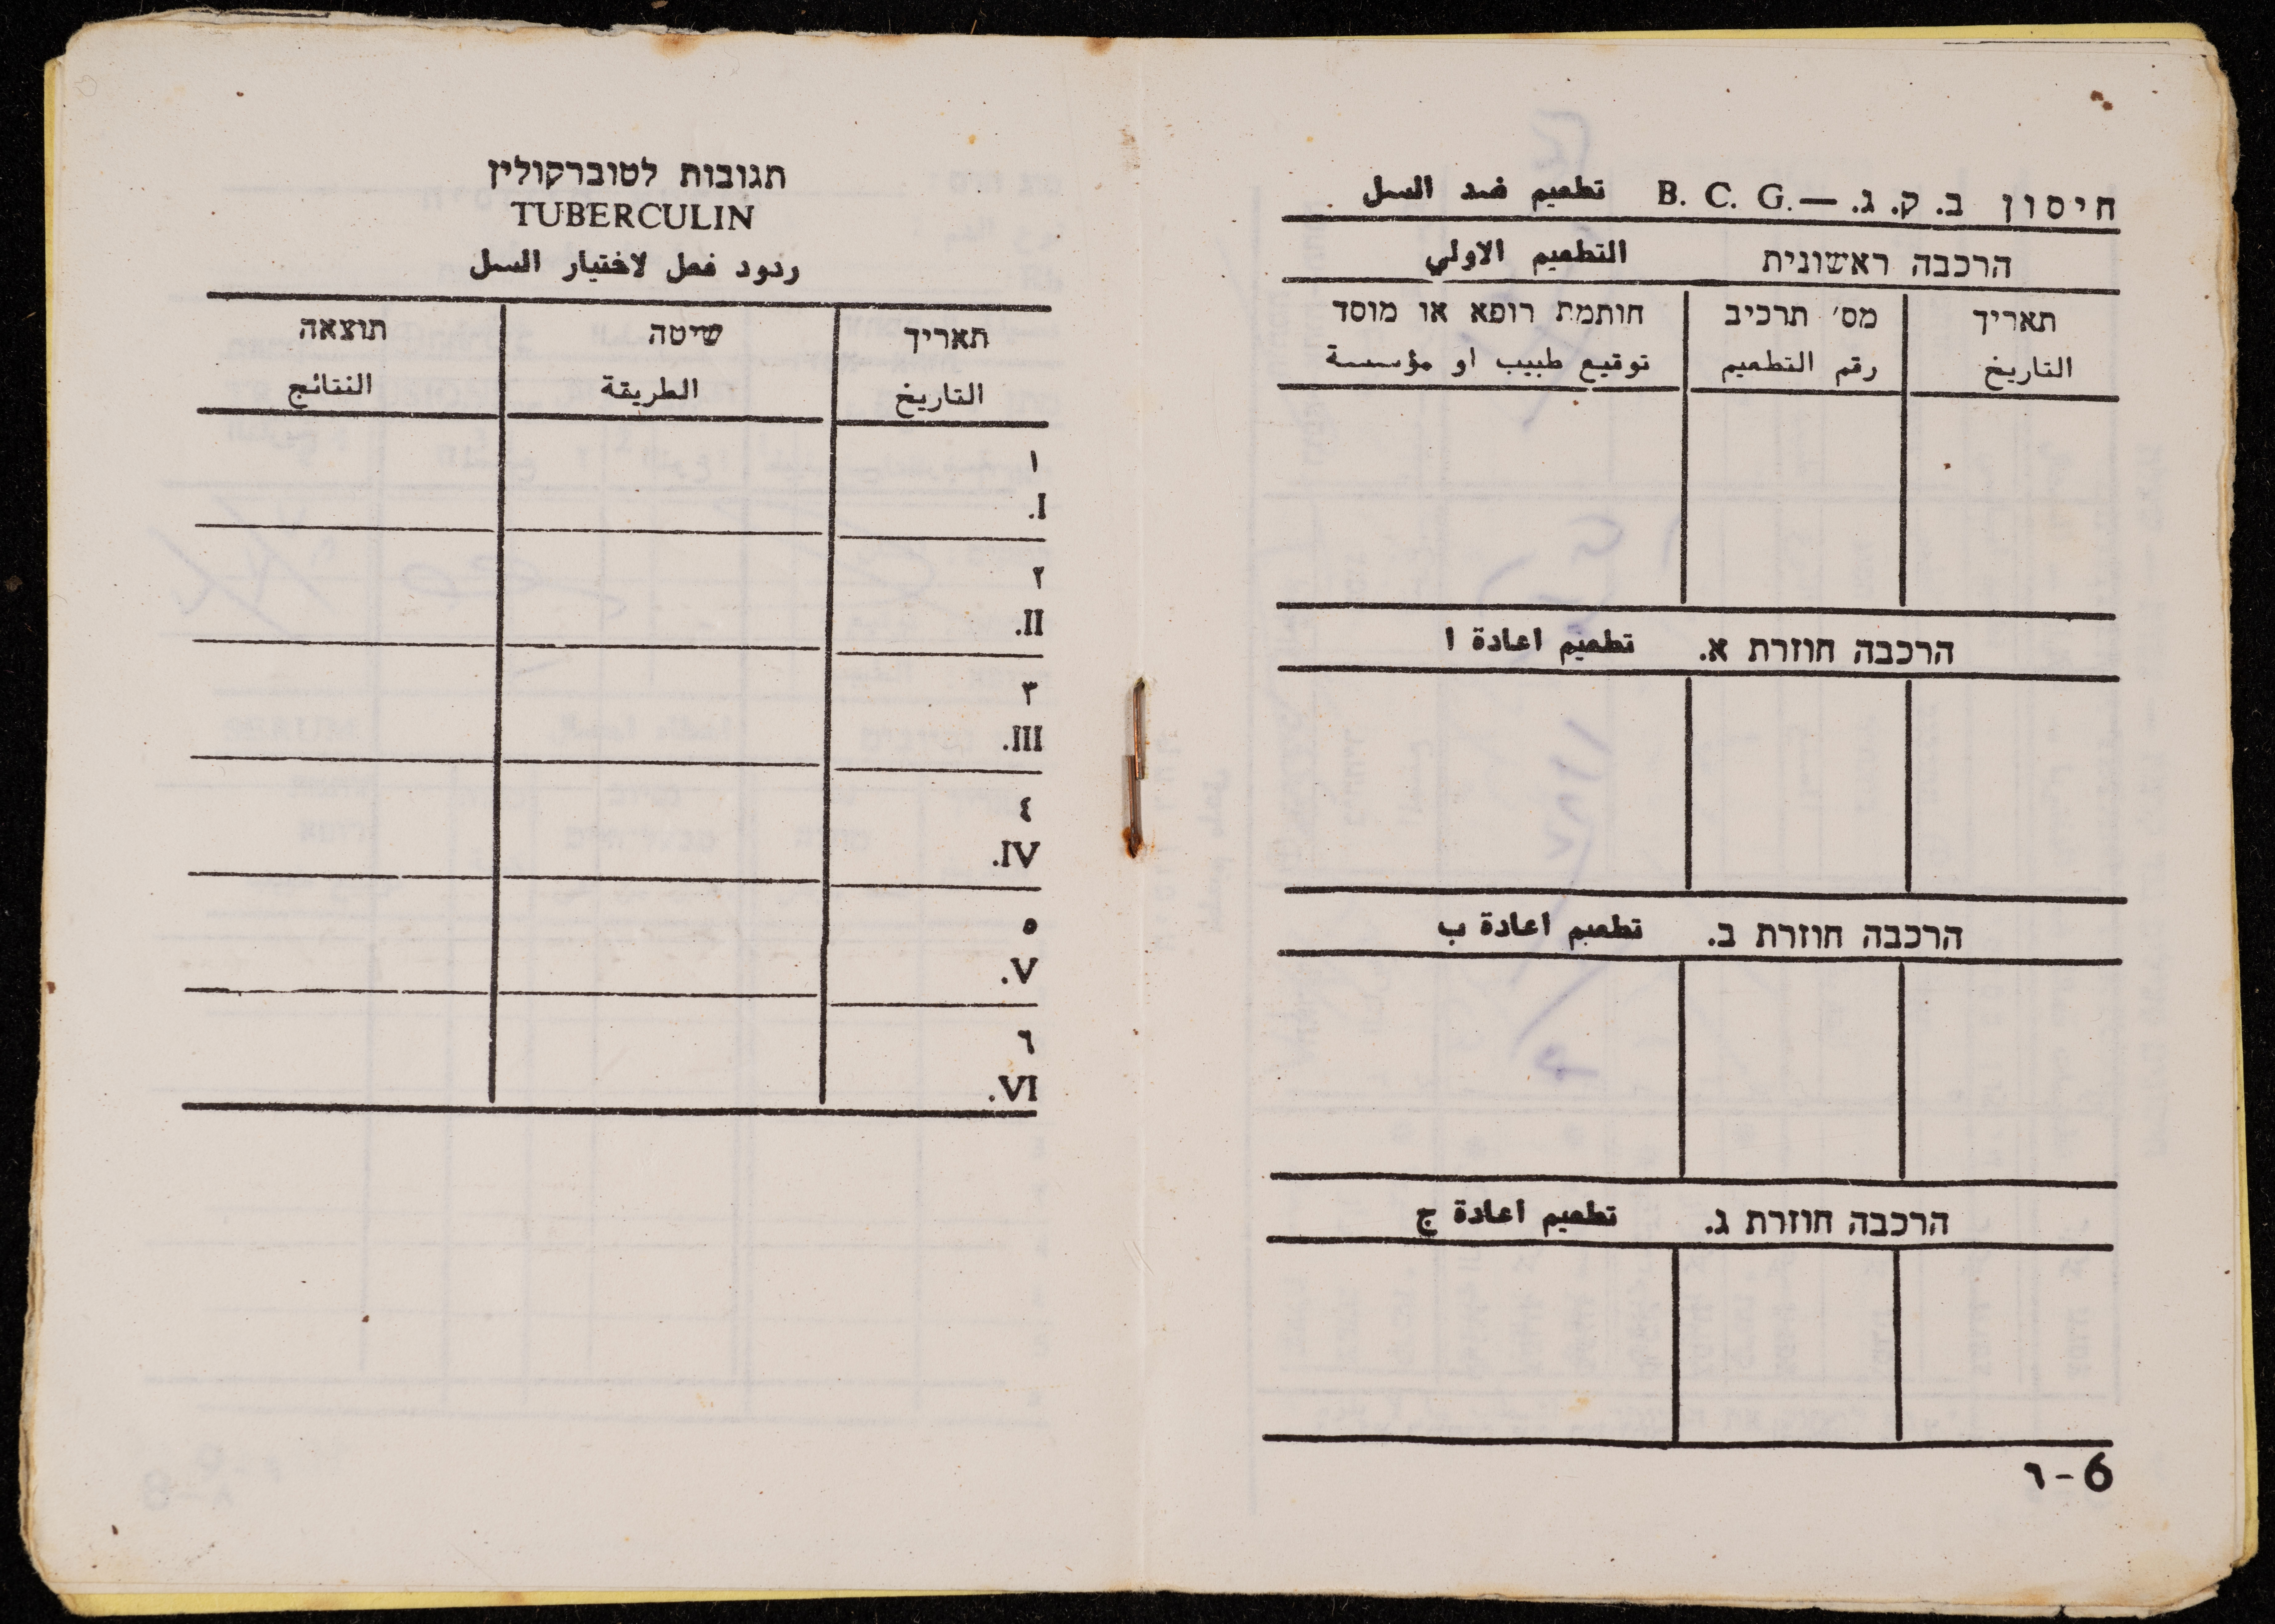 חיסון ב. ק. ג. — .B. C. G تطعيم ضد السل
הרכבה ראשונית التطعيم الاولي
תאריך מס׳ תרכיב חותמת רופא או מוסד
التاريخ رقم التطعيم توقيع طبيب او مؤسسة
הרכבה חוזרת א. تطعيم اعادة ا
הרכבה חוזרת ב. تطعيم اعادة ب
הרכבה חוזרת ג. تطعيم اعادة ج
6-٦
תגובות לטוברקולין
TUBERCULIN
ردود فعل لاختبار السل
תאריך שיטה תוצאה
التاريخ الطريقة النتائج
١
.I
٢
.II
٣
.III
٤
.IV
٥
.V
٦
.VI